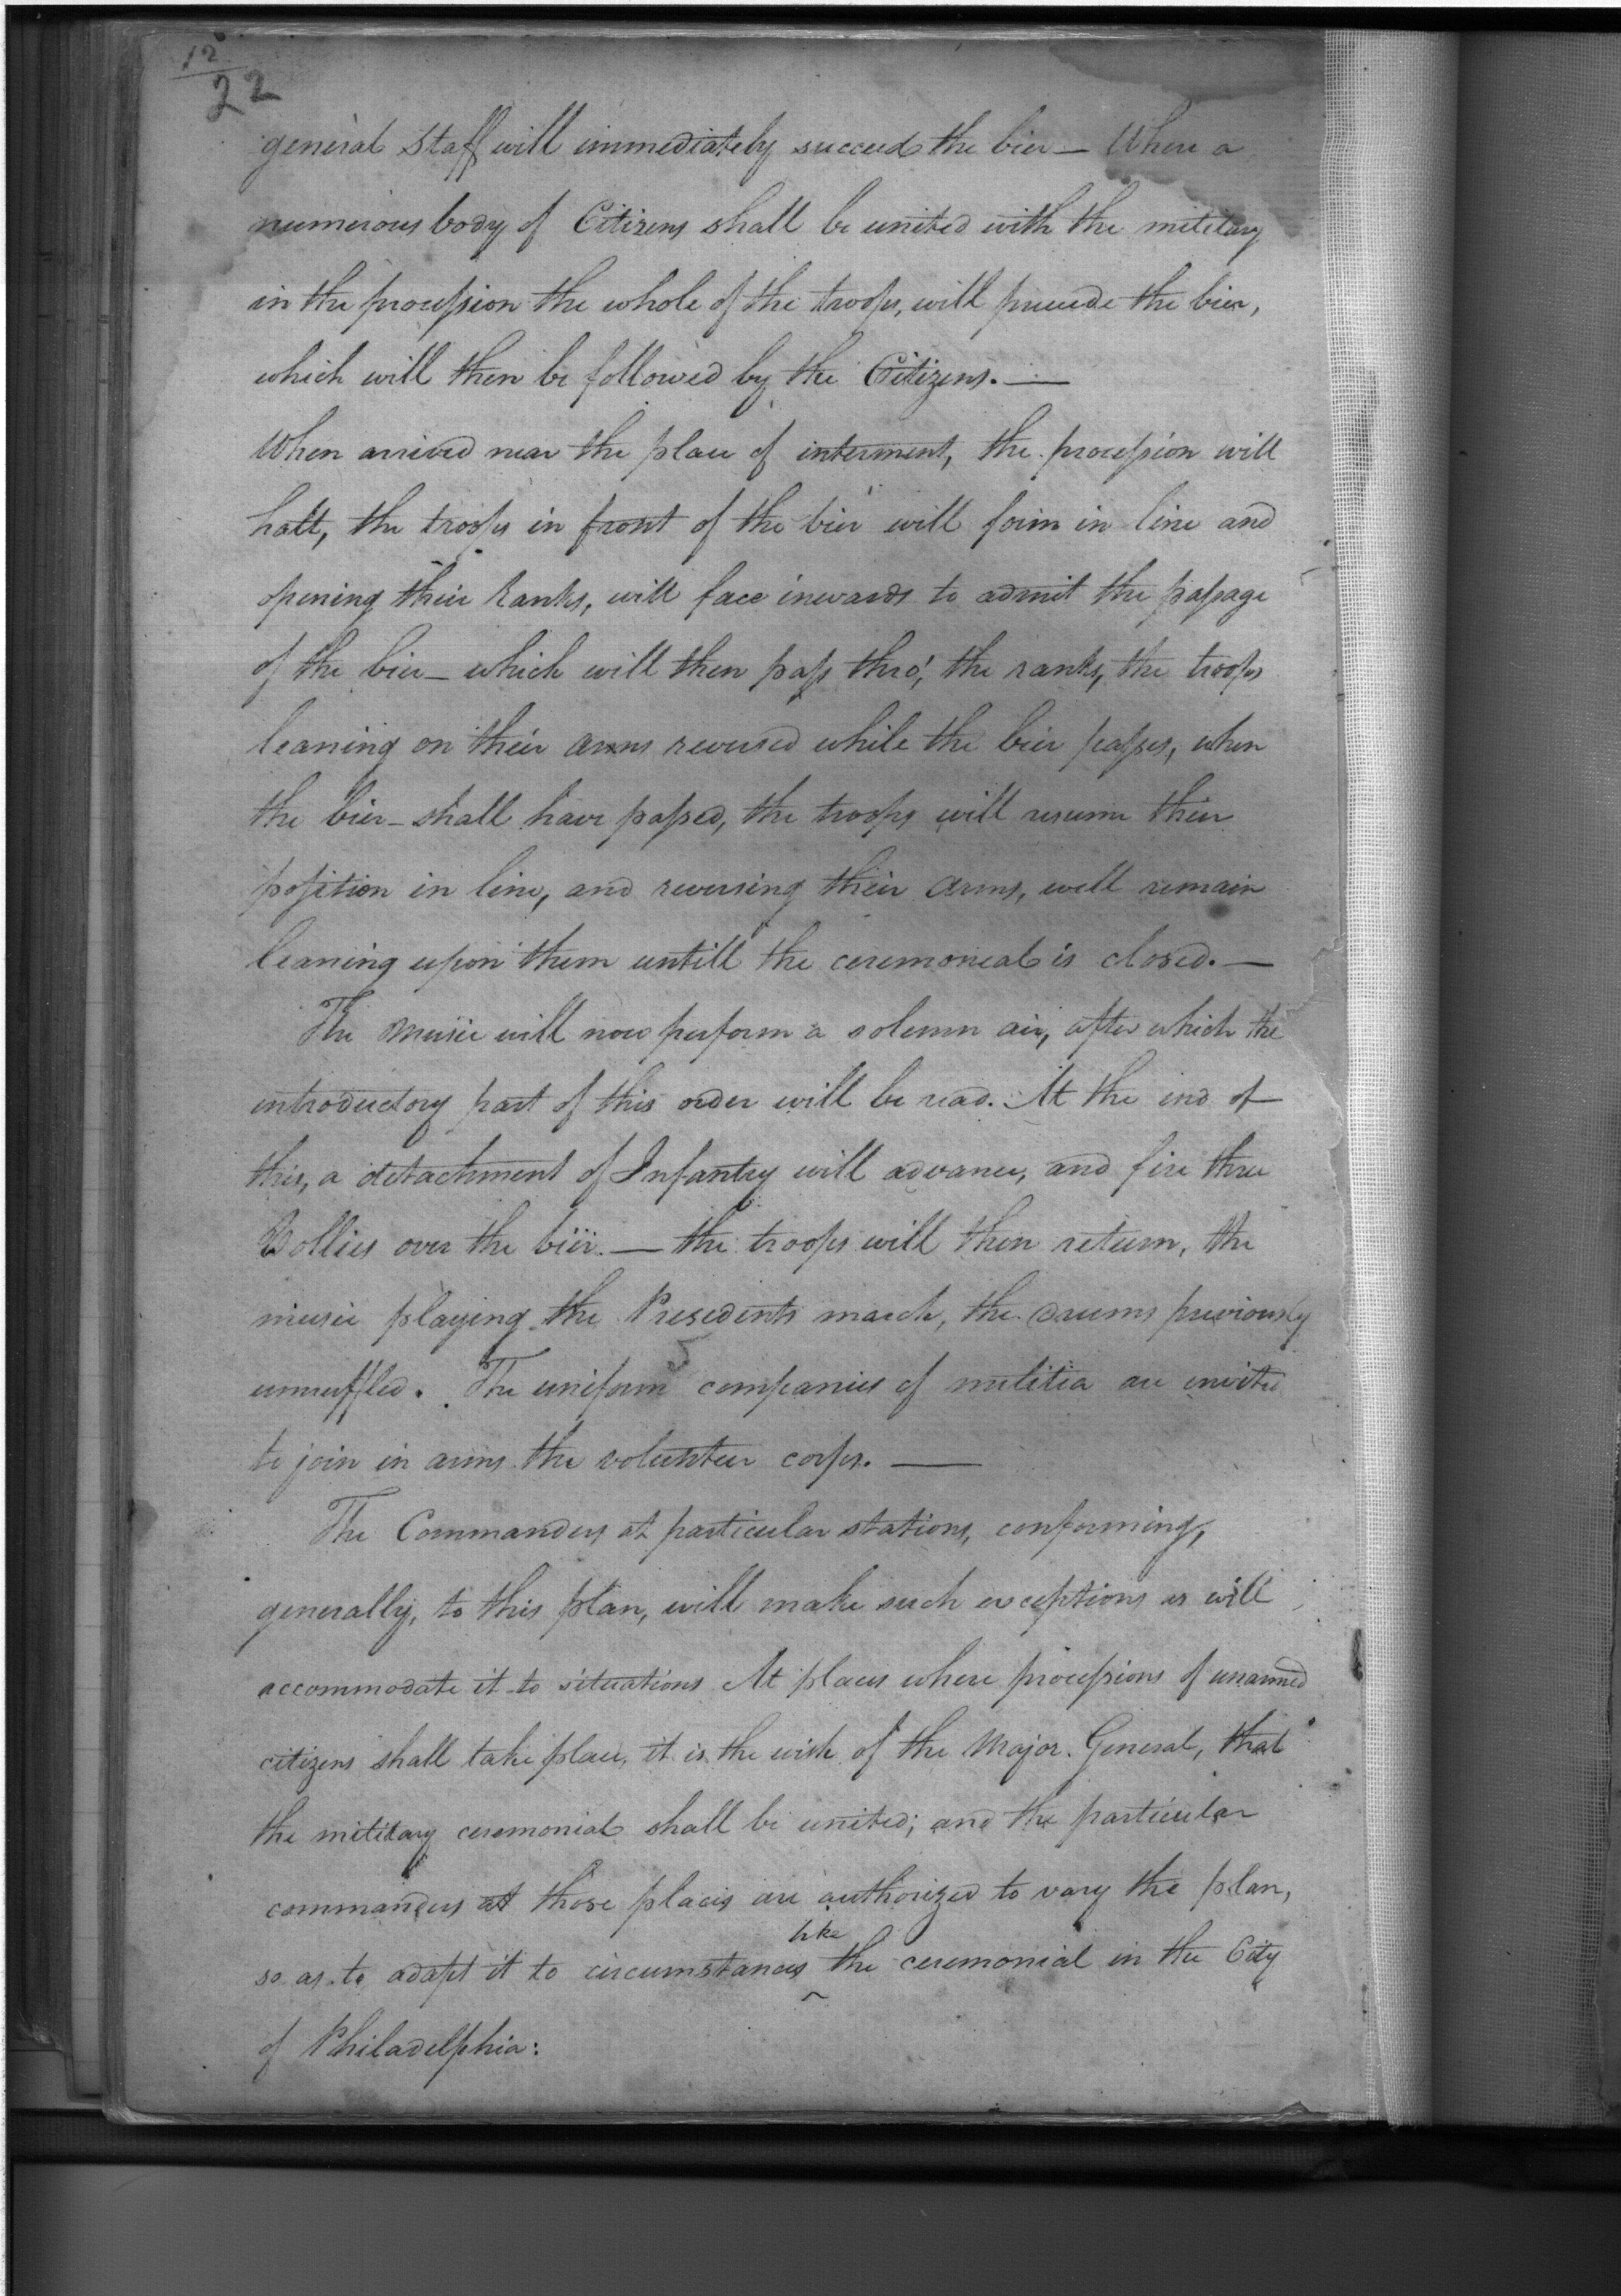 12
22
general Staff will immediately succeed the bier — Where a
numerous body of Citizens shall be united with the military
in the procession the whole of the troops, will precede the bier,
which will then be followed by the Citizens. —
When arrived near the place of interment, the procession will
halt, the troops in front of the bier will form in line and
opening their Ranks, will face inwards to admit the passage
of the bier — which will then pass thro', the ranks, the troops
leaning on their arms reversed while the bier passes, when
the bier — shall have passed, the troops will resume their
position in line, and reversing their arms, will remain
leaning upon them untill the ceremonial is closed. —
The Music will now perform a solemn air, after which the
introductory part of this order will be read. At the end of
this, a detachment of Infantry will advance, and fire three
Vollies over the bier. — the troops will then return, the
music playing the Presedents march, the drums previously
unmuffled. The uniform companies of militia are invite
to join in arms the volunteer corps. —
The Commanders at particular stations, conforming,
generally, to this plan, will make such exceptions as will
accommodate it to situations At places where processions of unarmed
citizens shall take place, it is the wish of the Major. General, that
the military ceremonial shall be united; and the particular
commanders at those places are authorized to vary the plan,
like
so as to adapt it to circumstances ^ the ceremonial in the City
of Philadelphia: